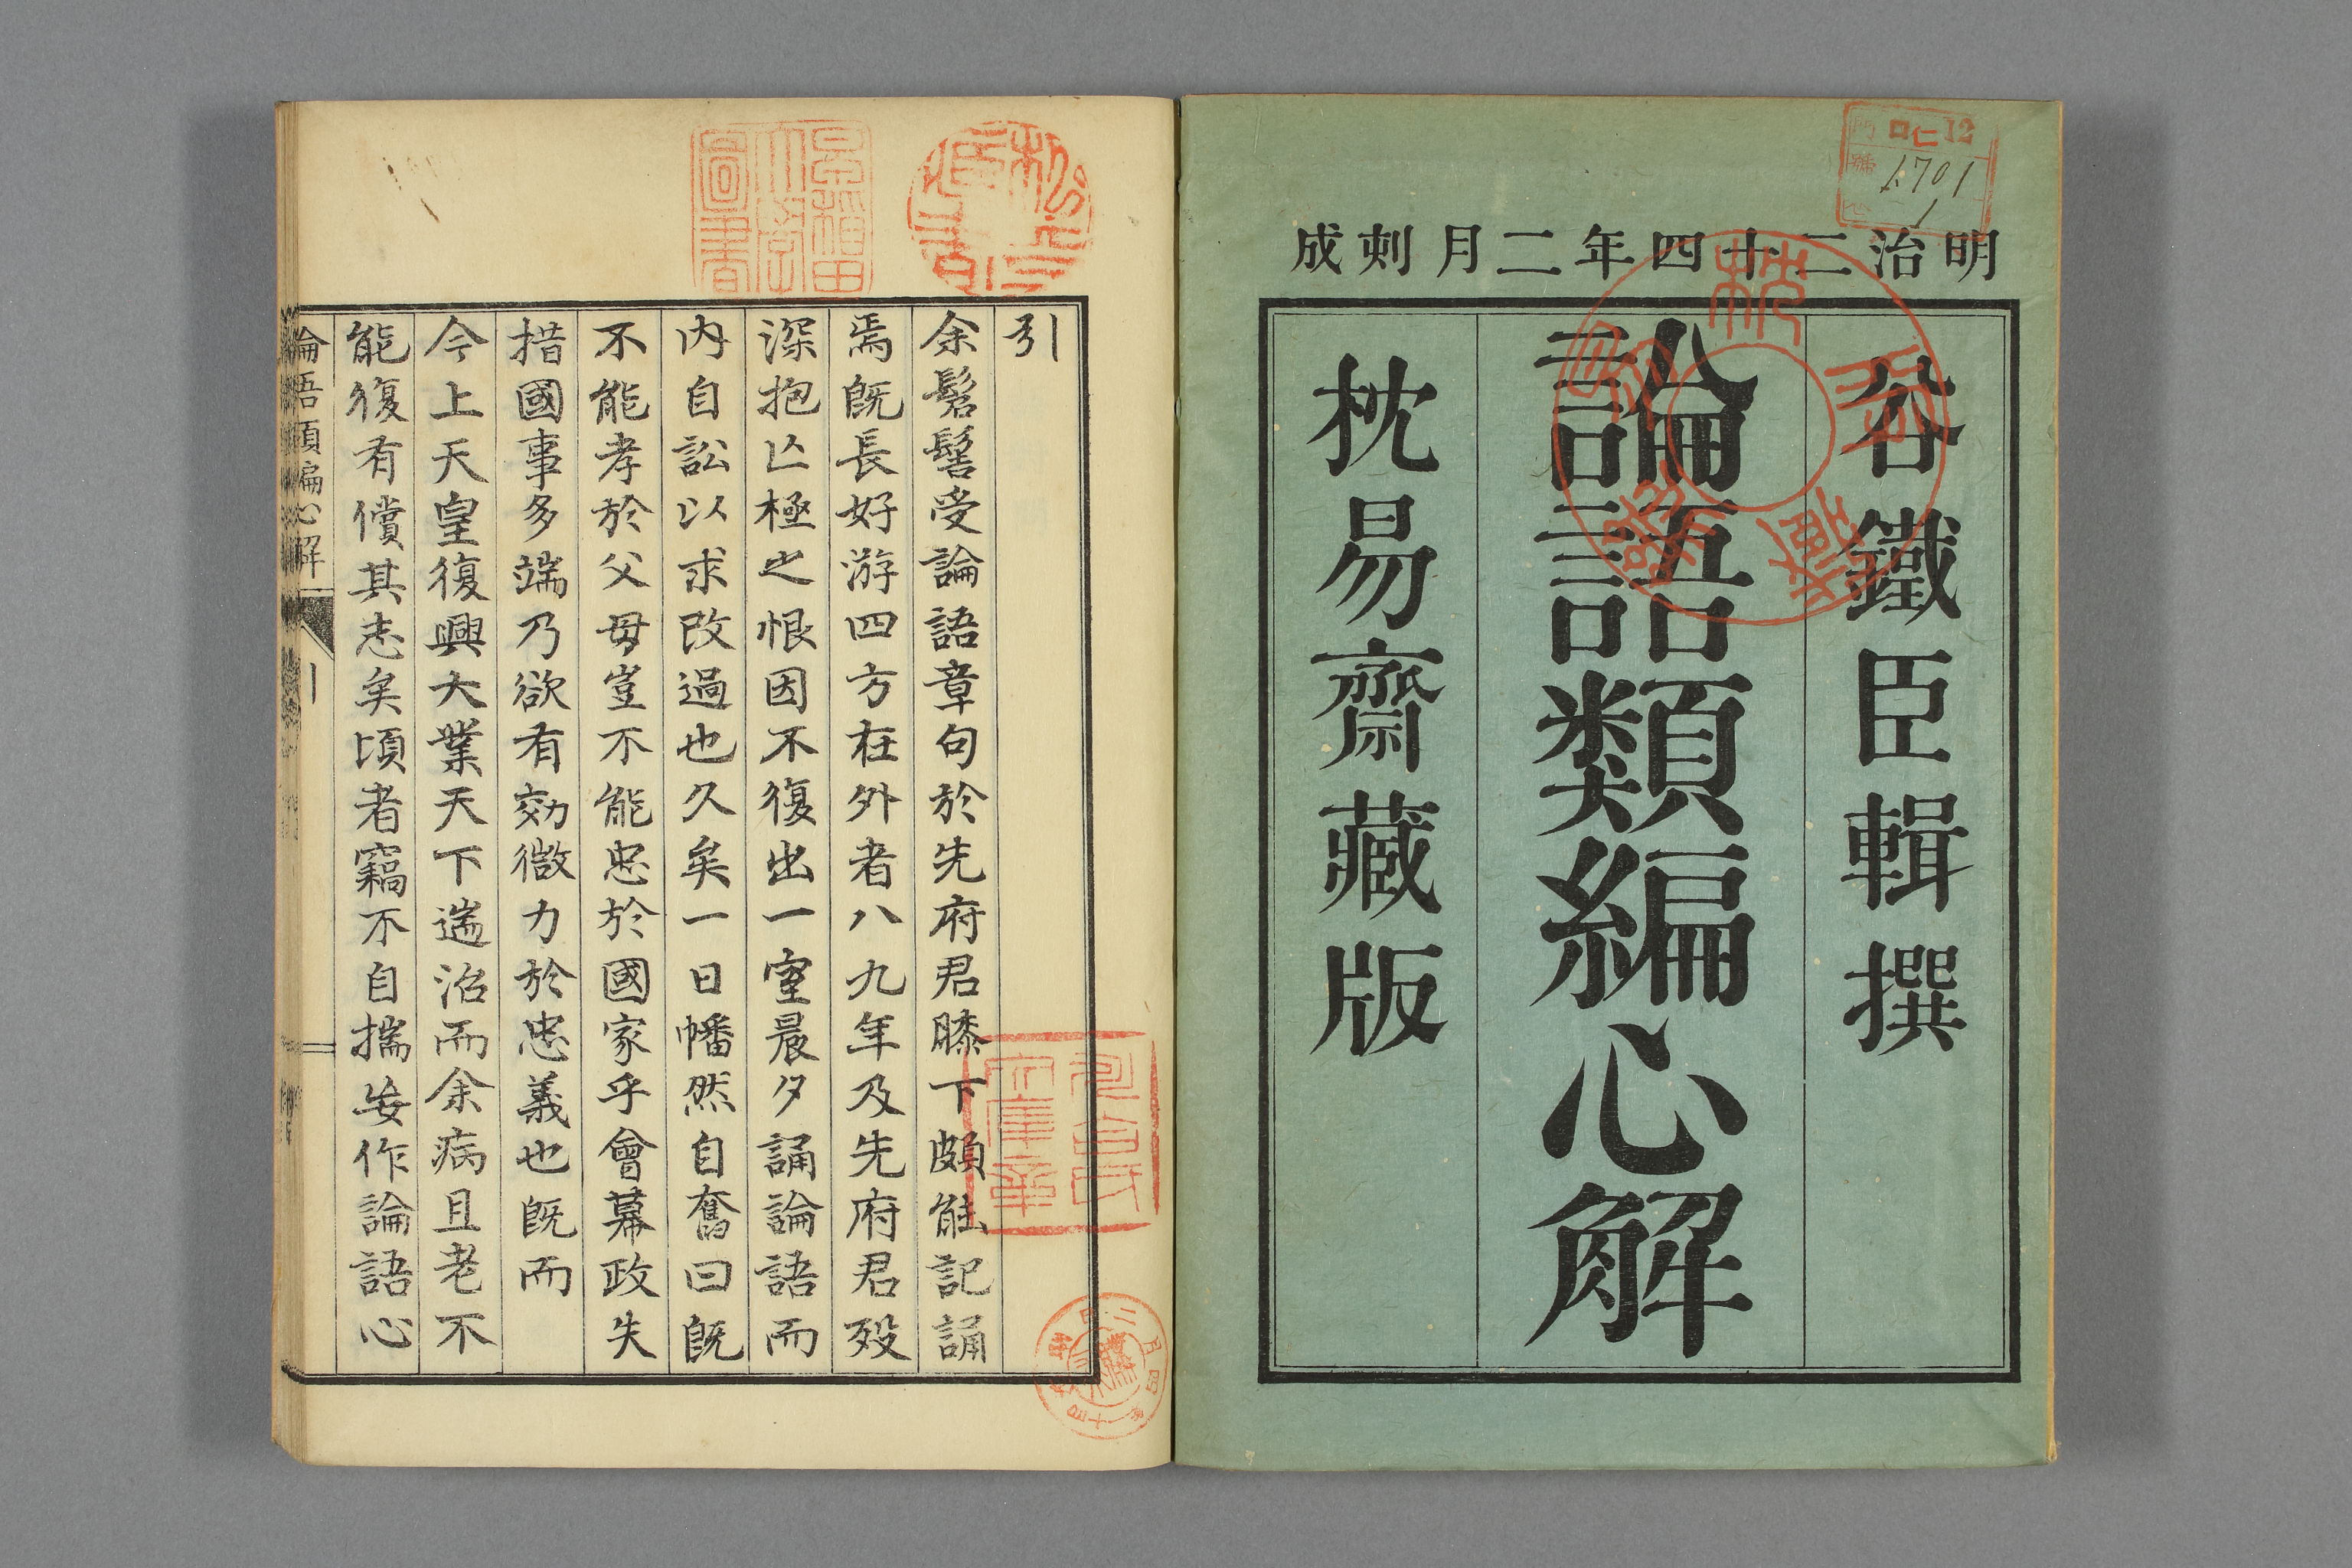 明治二十四年二月刺成
谷鐵臣輯撰
論語類編心解
枕易齋藏版
口仁12
門
號 1701
1
引
余髫髻受論語章句於先府君膝下頗能記誦
焉既長好游四方在外者八九年及先府君歿
深抱亾極之恨因不復出一室晨夕誦論語而
內自訟以求改過也久矣一日幡然自奮曰既
不能孝於父母豈不能忠於國家乎會幕政失
措國事多端乃欲有効微力於忠義也既而
今上天皇復興大業天下遄治而余病且老不
能復有償其志矣頃者竊不自揣妄作論語心
論語類編心解
一